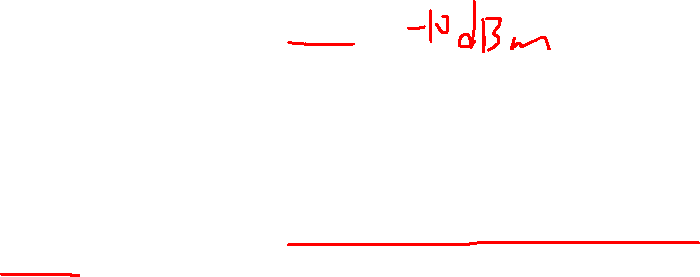 -10 dBm